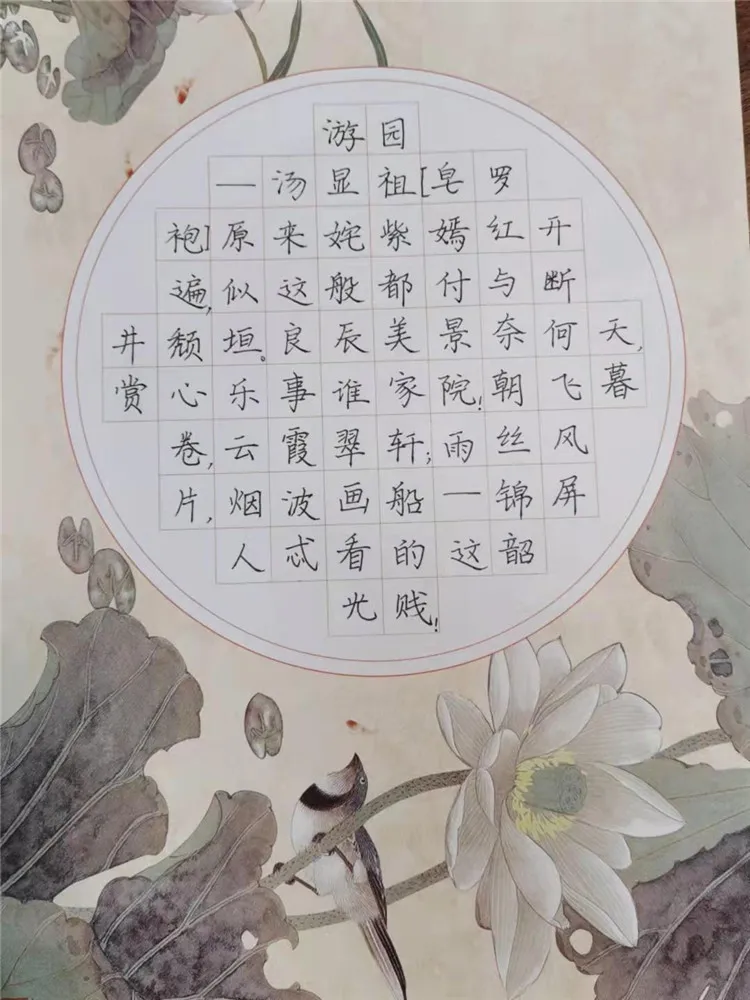 游园
—汤显祖[皂罗
袍]原来姹紫嫣红开
遍,似这般都付与断
井颓垣。良辰美景奈何天,
赏心乐事谁家院!朝飞暮
卷,云霞翠轩;雨丝风
片,烟波画船—锦屏
人忒看的这韶
光贱!